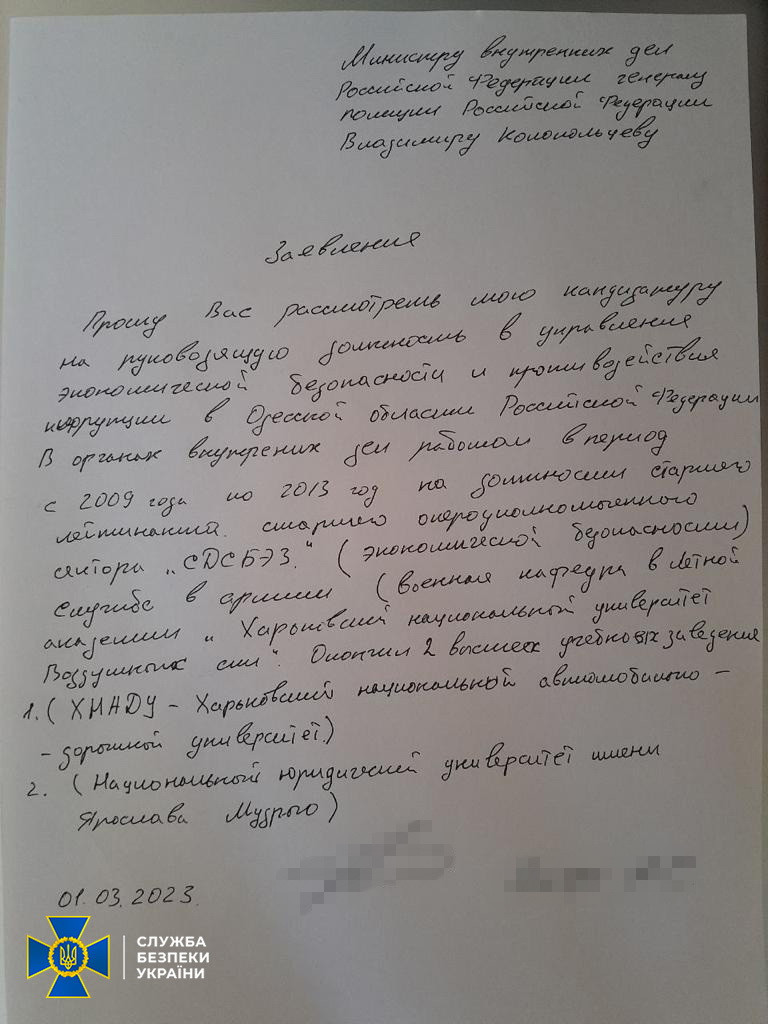 Министру внутренних дел
Российской Федерации генералу
полиции Российской Федерации
Владимиру Колокольцеву
Заявления
Прошу Вас рассмотреть мою кандидатуру
на руководящую должность в управления
экономической безопасности и противодействия
коррупции в Одесской области Российской Федерации
В органах внутрених дел работал в период
с 2009 года по 2013 год на должности старшего
лейтинанта. старшего
сектора „СДСБЭЗ." (экономической безопасности)
Служба в армии (военная кафедра в Летной
академии „Харьковский национальной университет
Воздушных сил". Окончил 2 высшех учебных заведения
1. (ХНАДУ - Харьковский национальной автомобильно -
- дорожной университет.)
2. (Национальной юридический университет имени
Ярослава Мудрого)
01.03.2023.
СЛУЖБА
БЕЗПЕКИ
УКРАЇНИ